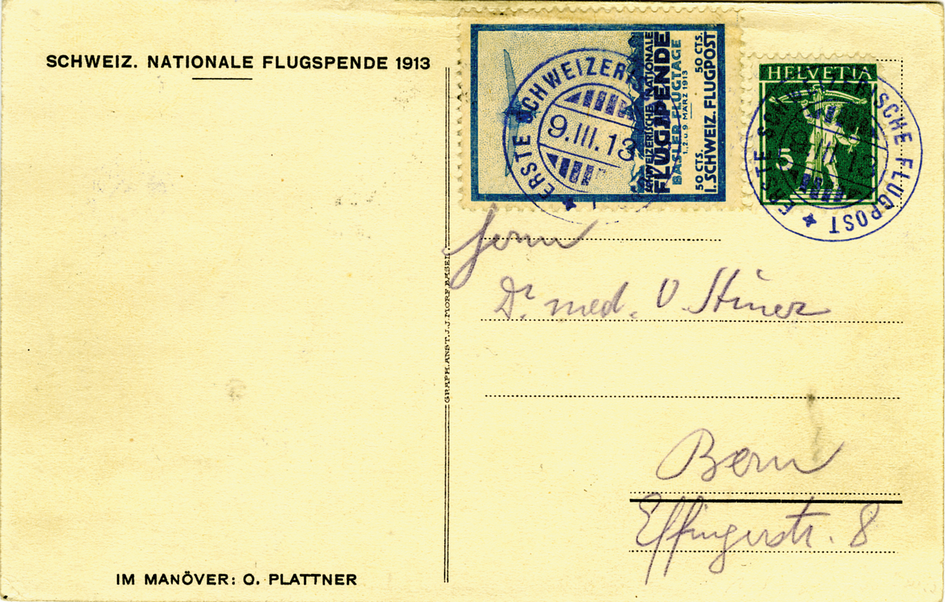 SCHWEIZ. NATIONALE FLUGSPENDE 1913
SCHWEIZERISCHE NATIONALE
FLUGSPENDE
BASLER FLUGTAGE
1. 2 u 9 MÄRZ 1913
50 CTS. 50 CTS.
I. SCHWEIZ. FLUGPOST
ERSTE SCHWEIZERISCHE
9.III.13
HELVETIA
5
ERSTE SCHWEIZERISCHE FLUGPOST
9.III.13
Herrn
Dr. med. O Stiner
Bern
Effingerstr. 8
GRAPH. ANST. J. J. MORF, BASEL
IM MANÖVER: O. PLATTNER